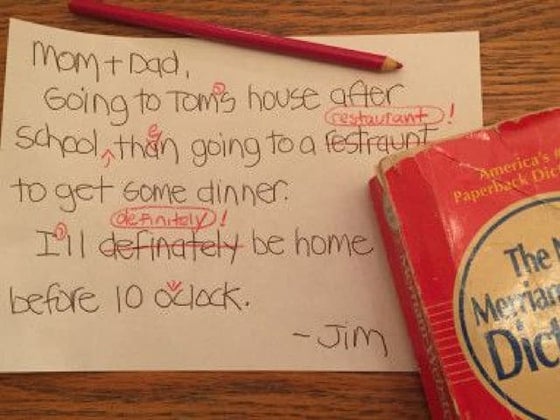 Mom + Dad,
Going to Tom's house after
restaurant!
school, then going to a restraunt
to get some dinner.
definitely!
I'll definately be home
before 10 o'clock.
- Jim
America's
Paperback
The
Dic